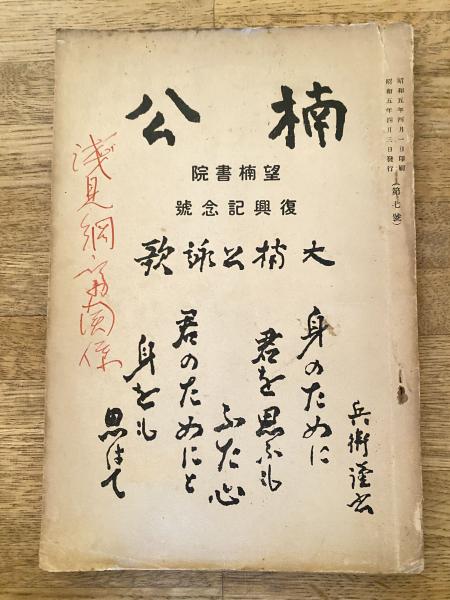 昭和五年四月一日印刷
昭和五年四月三日發行
(第七號)
楠公
望楠書院
復興記念號
大楠公詠歌
兵衛謹書
身のために
君を思ふも
ふた心
君のためにと
身をも
思はて
浅見絅斎関係